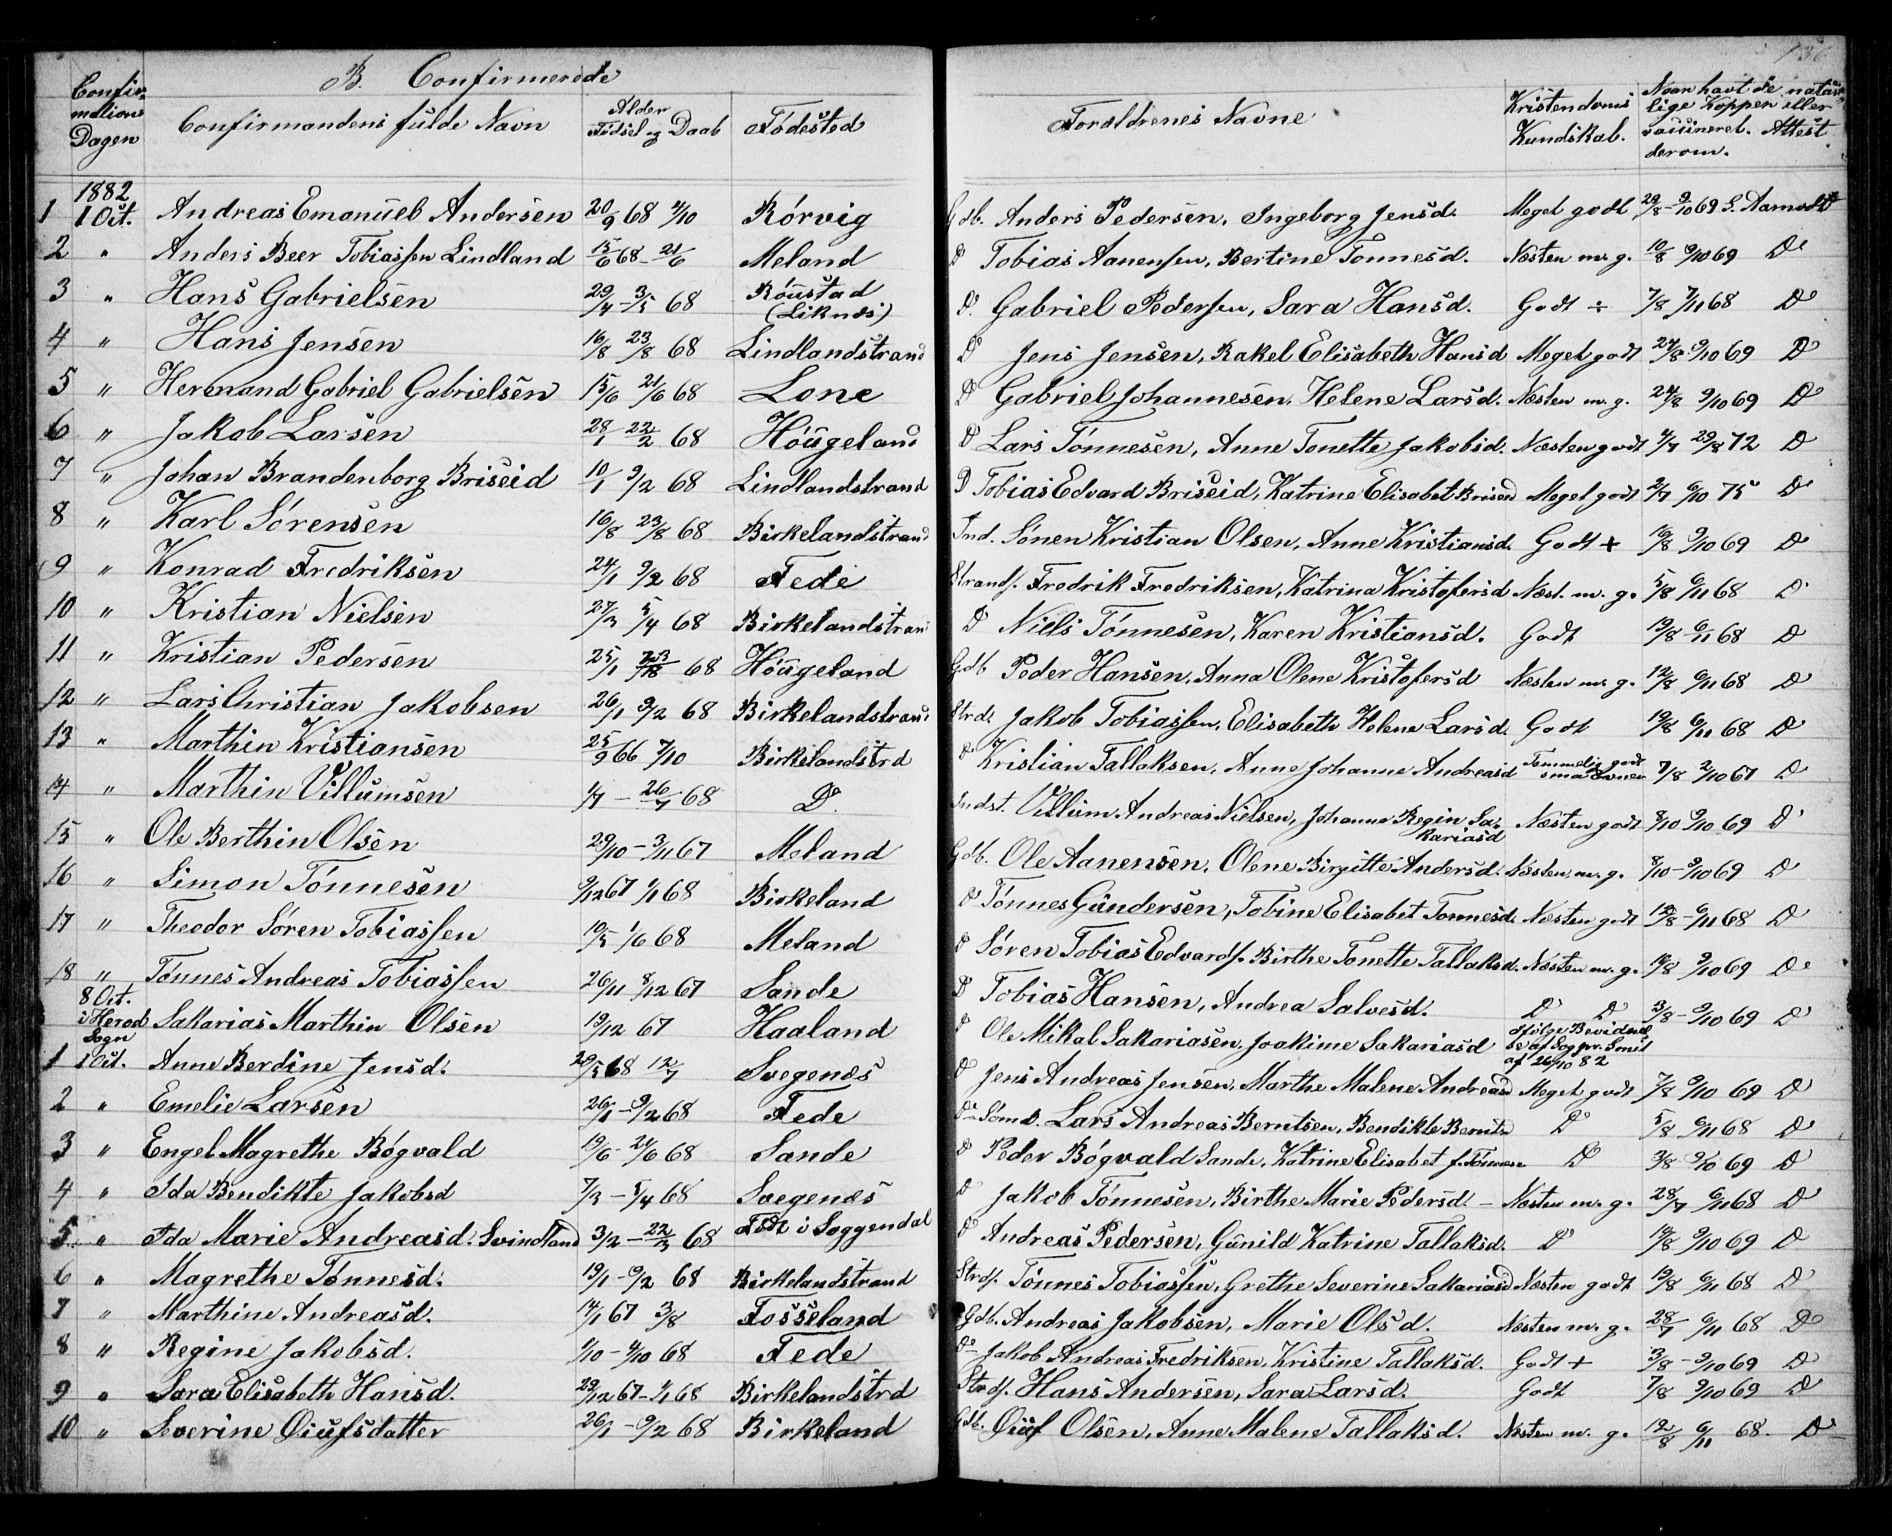 136
B. Confirmerede
Confir-
mations
Dagen
Confirmandens fulde Navn
Alder
Födsel og Daab
Födested
Forældrenes Navne
Kristendoms
Kundskab.
Naar havt de natur-
lige Kopper eller
vaccineret. Attest
derom.
1882
1 1 Oct. Andreas Emanuel Andersen 20/9 68 4/10 Rörvig Gdb. Anders Pedersen, Ingeborg Jensd. Meget godt 29/8 - 9/10 69 S. Aamodt
2 " Anders Beer Tobiassen Lindland 15/6 68 - 21/6 Meland Do Tobias Aanensen, Bertine Tonnesd. Næsten m. g. 10/8 9/10 69 Do
3 " Hans Gabrielsen 29/4 - 3/5 68 Röustad
(Liknes) Do Gabriel Pedersen, Sara Hansd. Godt ÷ 7/8 7/11 68 Do
4 " Hans Jensen 16/8 23/8 68 Lindlandstrand Do Jens Jensen, Rakel Elisabeth Hansd Meget godt 24/8 9/10 69 Do
5 " Hermand Gabriel Gabrielsen 15/6 21/6 68 Lone Do Gabriel Johannesen, Helene Larsd. Næsten m. g. 24/8 9/10 69 Do
6 " Jakob Larsen 28/1 22/2 68 Höugeland Do Lars Tönnesen, Anne Tonette Jakobsd. Næsten godt 4/7 29/8 72 Do
7 " Johan Brandenborg Briseid 10/1 9/2 68 Lindlandstrand Do Tobias Edvard Briseid, Katrine Elisabet Briseid Meget godt 2/7 6/10 75 Do
8 " Karl Sörensen 16/8 23/8 68 Birkelandstrand Ind. Sören Kristian Olsen, Anne Kristiansd. Godt + 16/8 9/10 69 Do
9 " Konrad Fredriksen 24/1 9/2 68 Fede Strands. Fredrik Fredriksen, Katrina Kristofersd Næst. m. g. 5/8 6/11 68 Do
10 " Kristian Nielsen 27/3 5/4 68 Birkelandstrand Do Niels Tönnesen, Karen Kristiansd. Godt 19/8 6/11 68 Do
11 " Kristian Pedersen 25/1 68 Höugeland Gdb. Peder Hansen, Anna Olene Kristofersd Næsten m. g. 12/8 6/11 68 Do
12 " Lars Christian Jakobsen 26/1 9/2 68 Birkelandstrand Strds. Jakob Tobiassen, Elisabeth Helene Larsd. Godt 19/8 6/11 68 Do
13 " Marthin Kristiansen 25/9 66 7/10 Birkelandstrd Do Kristian Tallaksen, Anne Johanne Andreasd Temmelig godt
smaa Evner 7/8 2/10 67 Do
14 " Marthin Villumsen 1/7 - 26/7 68 Do Indst. Villum Andreas Nielsen, Johanne Regin Sa-
kariasd Næsten godt 8/10 9/10 69 Do
15 " Ole Berthin Olsen 29/10 - 3/11 67 Meland Gdb. Ole Aanensen, Olene Birgitte Andersd. Næsten m. g. 8/10 - 9/10 69 Do
16 " Simon Tönnesen 9/12 67 1/1 68 Birkeland Do Tönnes Gundersen, Tobine Elisabet Tonnesd. Næsten godt 12/8 - 6/11 68 Do
17 " Theodor Sören Tobiassen 19/5 1/6 68 Meland Do Sören Tobias Edvards. Birthe Tonette Tallaksd. Næsten m. g. 16/8 9/10 69 Do
18 " Tönnes Andreas Tobiassen 26/11 8/12 67 Sande Do Tobias Hansen, Andrea Salvesd. Do Do 3/8 - 9/10 69 Do
8 Oct.
i Herad
Sogn Sakarias Marthin Olsen 19/12 67 Haaland Do Ole Mikal Sakariasen, Joakime Sakariasd ifölge Bevidnel
se af Sogpr. Smit
af 26/10 82
1 1 Oct. Anne Berdine Jensd. 29/5 68 12/7 Svegenæs Do Jens Andreas Jensen, Marthe Malene Andreasd Meget godt 7/8 9/10 69 Do
2 " Emelie Larsen 26/1 - 9/2 68 Fede Do Sömd. Lars Andreas Berntsen, Bendikte Berntsd Do 5/8 6/11 68 Do
3 " Engel Magrethe Bögvald 19/6 - 24/6 68 Sande Do Peder Bögvald Sande, Katrine Elisabet f. Tönnesen Do 3/8 9/10 69 Do
4 " Ida Bendikte Jakobsd 7/3 - 5/4 68 Svegenæs Do Jakob Tönnesen, Birthe Marie Pedersd. - Næsten m. g. 28/7 6/11 68 Do
5 " Ida Marie Andreasd. Svindland 3/2 - 22/3 68 Föt i Soggendal Do Andreas Pedersen, Gunild Katrine Tallaksd. Do 16/8 9/10 69 Do
6 " Magrethe Tönnesd. 19/1 - 9/2 68 Birkelandstrand Strds. Tönnes Tobiassen, Grethe Severine Sakariasd Næsten godt 19/8 6/11 68 Do
7 " Marthine Andreasd. 14/1 67 3/8 Fosseland Gdb. Andreas Jakobsen, Marie Olsd. Næsten m. g. 28/7 6/11 68 Do
8 " Regine Jakobsd. 1/10 - 4/10 68 Fede Do Jakob Andreas Fredriksen, Kristine Tallaksd. Godt + 3/8 - 9/10 69 Do
9 " Sara Elisabeth Hansd. 29/12 67 - 1/1 68 Birkelandstrd Strds. Hans Andersen, Sara Larsd. Godt 7/8 9/10 69 Do
10 " Severine Öiufsdatter 26/1 - 9/2 68 Birkeland Gdb. Öiuf Olsen, Anne Malene Tallaksd. Næsten m. g. 12/8 6/11 68. Do